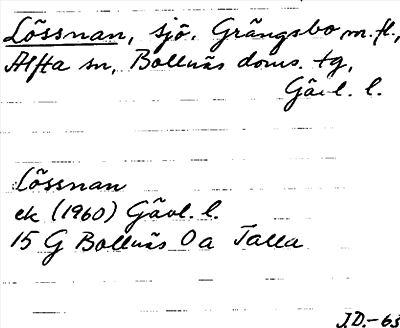 Lössnan, sjö. Grängsbo m. fl.,
Alfta sn, Bollnäs doms. tg,
Gävl. l.
Lössnan
ek (1960) Gävl. l.
15 G Bollnäs 0 a Talla
J.D.-63